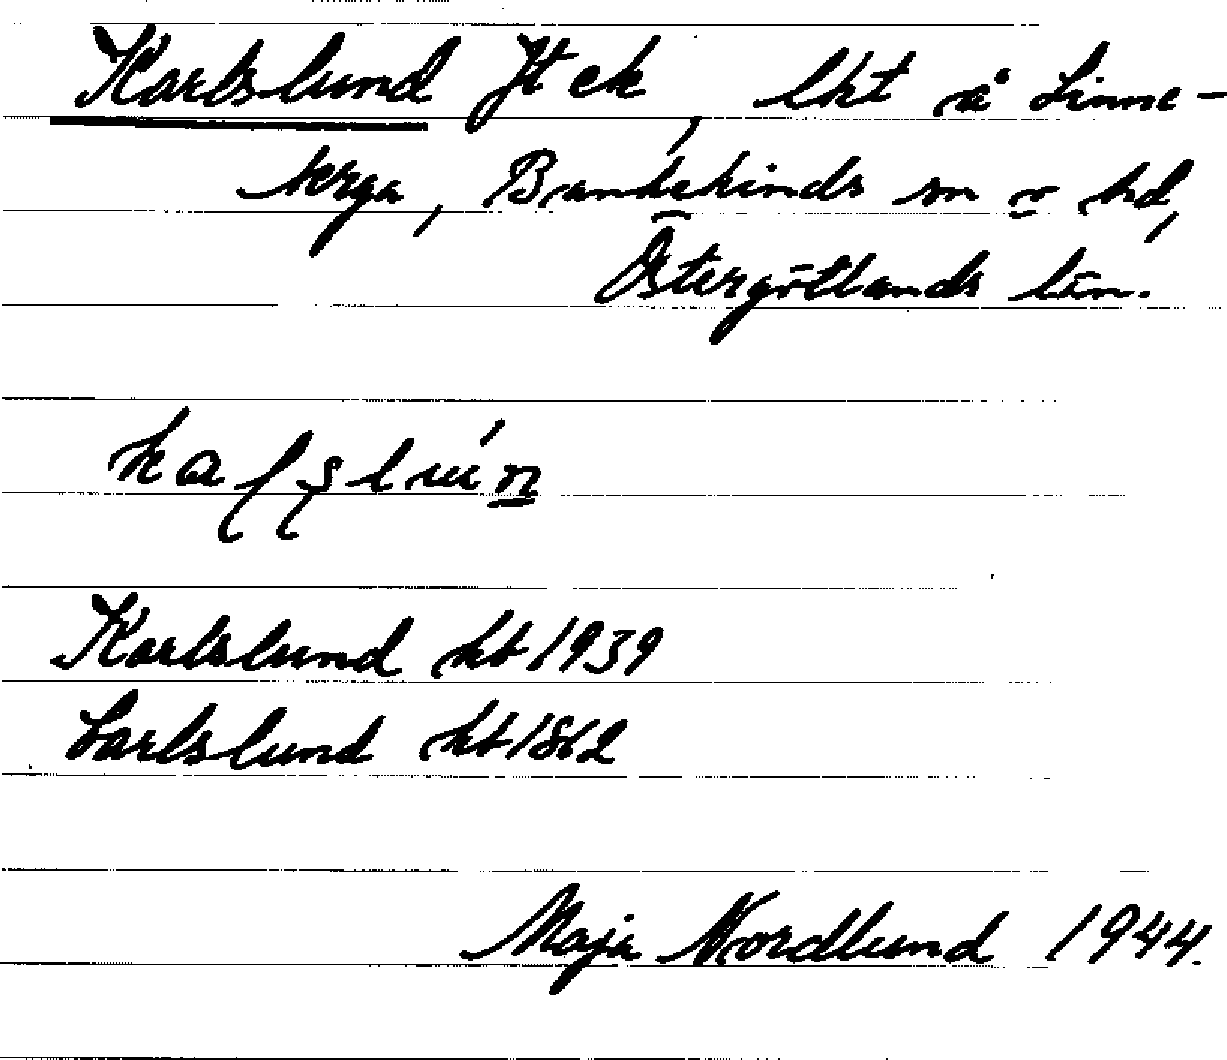 Karlslund Jt ek, lht å Linne-
berga, Bankekinds sn o hd,
Östergötlands län.
Karlslund hb 1939
Carlslund hb 1862
Maja Nordlund 1944.